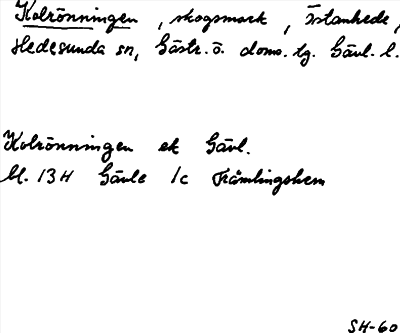 Kolrönningen , skogsmark , Östanhede,
Hedesunda sn, Gästr. ö. doms. tg. Gävl. l.
Kolrönningen ek Gävl.
bl. 13H Gävle 1c Främlingshem
SH-60